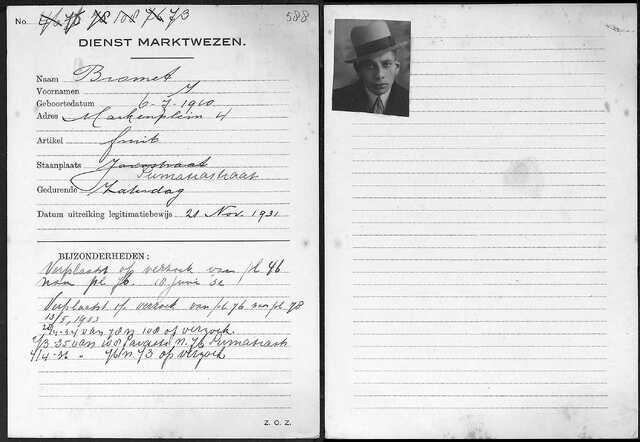 No. 46 76 78 108 76 73
588
DIENST MARKTWEZEN.
Naam Bromet
Voornamen I
Geboortedatum 6-7-1910
Adres Markenplein 4
Artikel fruit
Staanplaats Javastraat
Sumatrastraat
Gedurende Zaterdag
Datum uitreiking legitimatiebewijs 21 Nov. 1931
BIJZONDERHEDEN:
Verplaatst op verzoek van pl 46
naar pl 76. 18 Juni
Verplaatst op verzoek van pl 76 naar pl 78
13/5, 1933
van 78 n 108 op verzoek.
van 108 n. 76 Sumatrastr
4/4- " 76 n. 73 op verzoek
Z. O. Z.